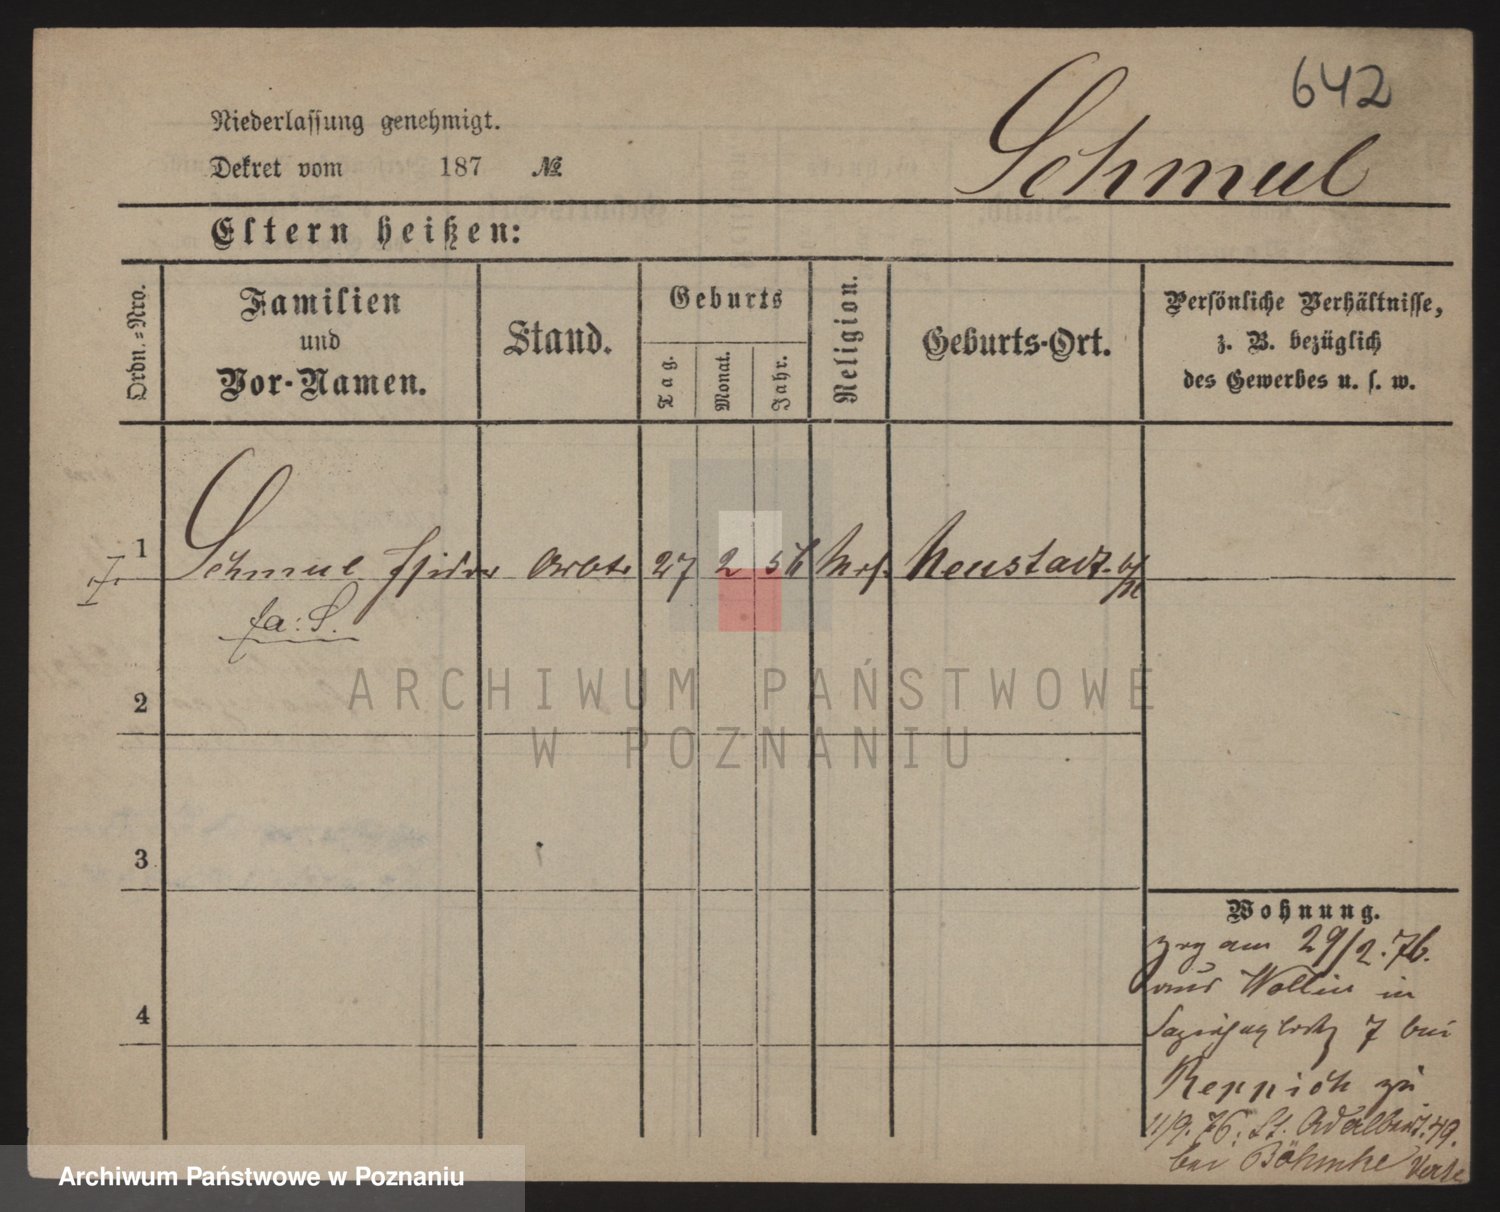 642
Niederlassung genehmigt.
Schmul
Dekret vom 187 №
Eltern heißen:
Ordn.-Nro.
Familien
und
Vor-Namen.
Stand.
Geburts
Tag.
Monat.
Jahr.
Religion.
Geburts-Ort.
Persönliche Verhältnisse,
z. B. bezüglich
des Gewerbes u. s. w.
1
Schmul Isidor 27 2 56 Mos. Neustadt
2
3
4
Wohnung.
zug am 29/2. 76.
aus Wollin in
7 bei
Reppich zu
11/9. 76. St. Adalbert. 49.
bei Böhmke
ARCHIWUM PAŃSTWOWE
W POZNANIU
Archiwum Państwowe w Poznaniu